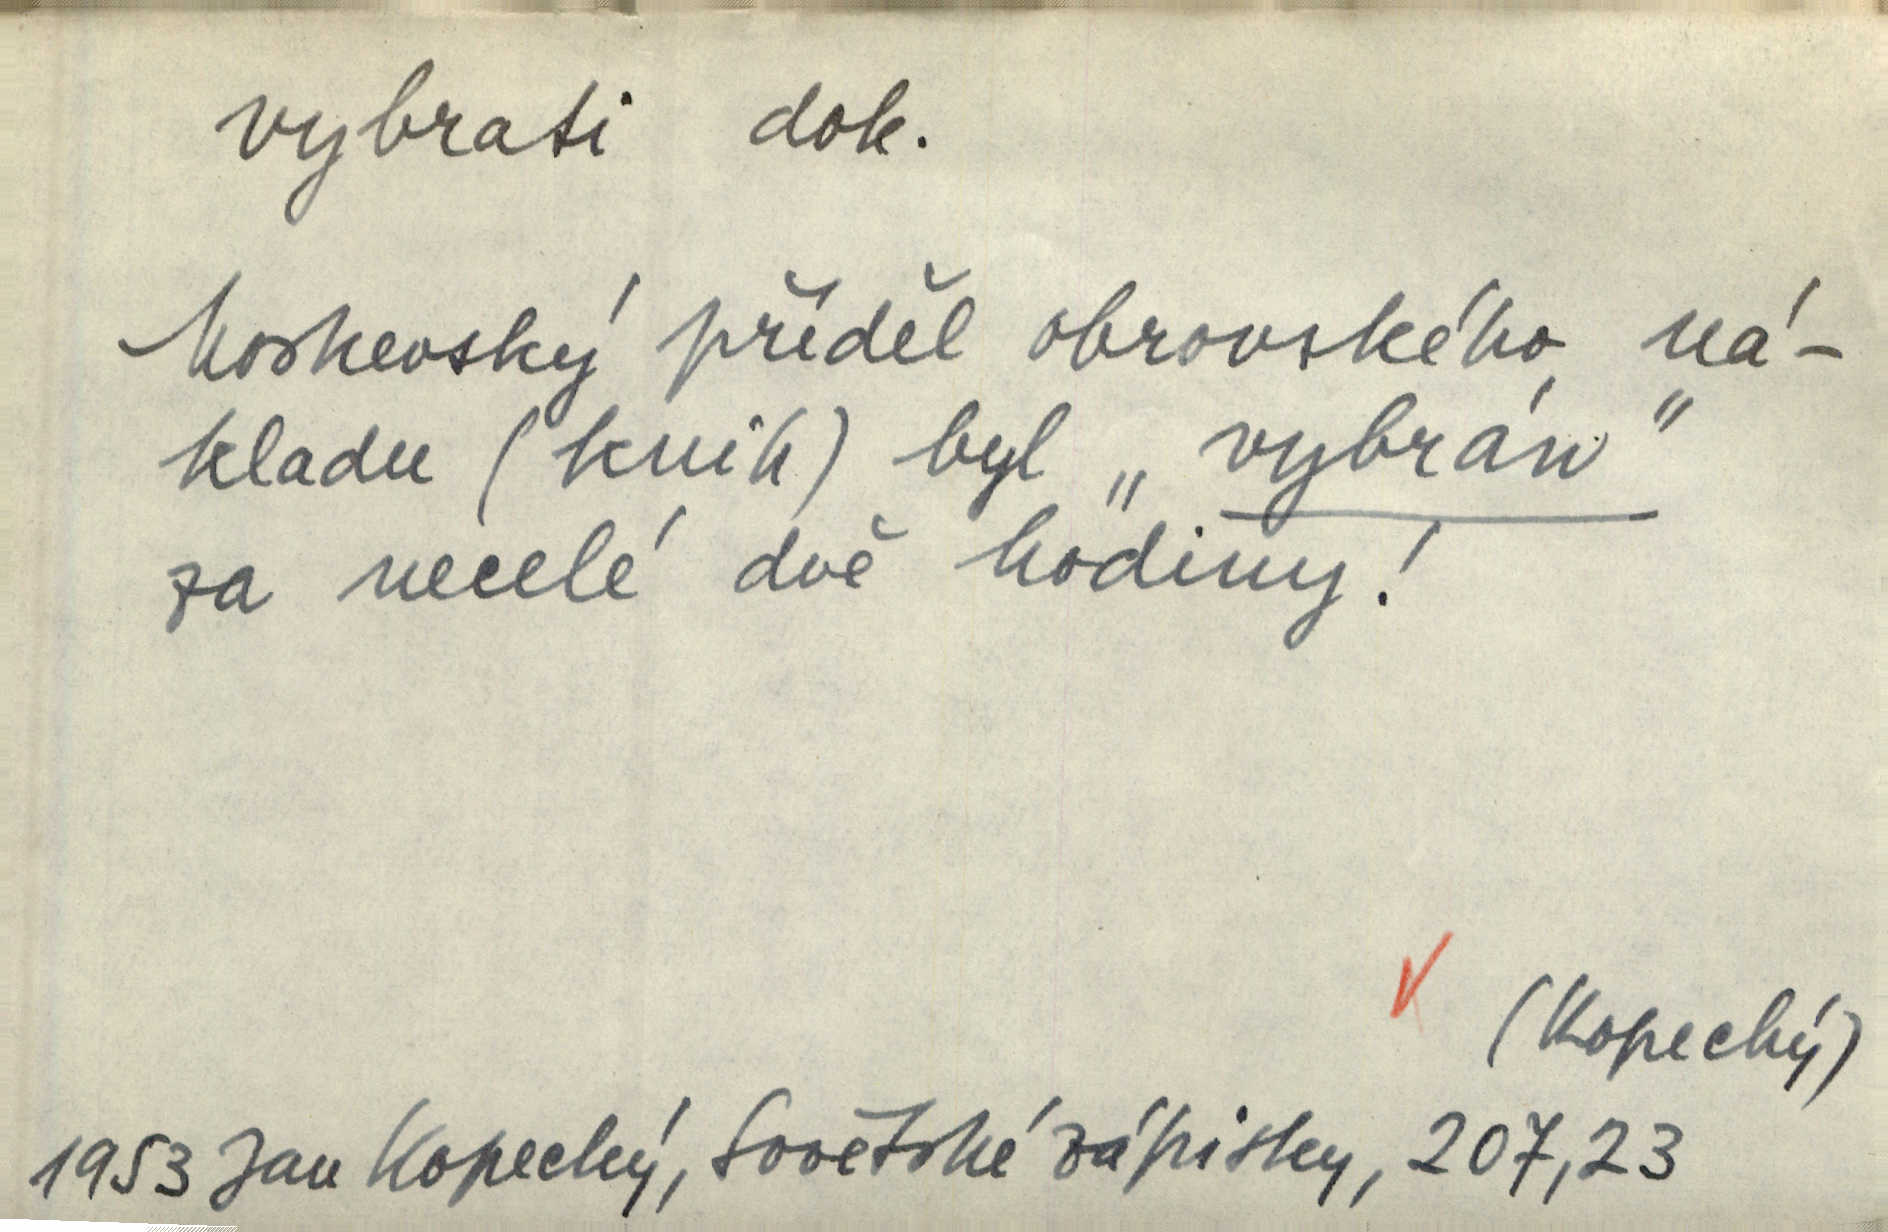 vybrati dok.
Moskevský příděl obrovského ná-
kladu (knih) byl „vybrán"
za necelé dvě hodiny!
(Kopecký)
1953 Jan Kopecký, Sovětské zápisky, 207,23